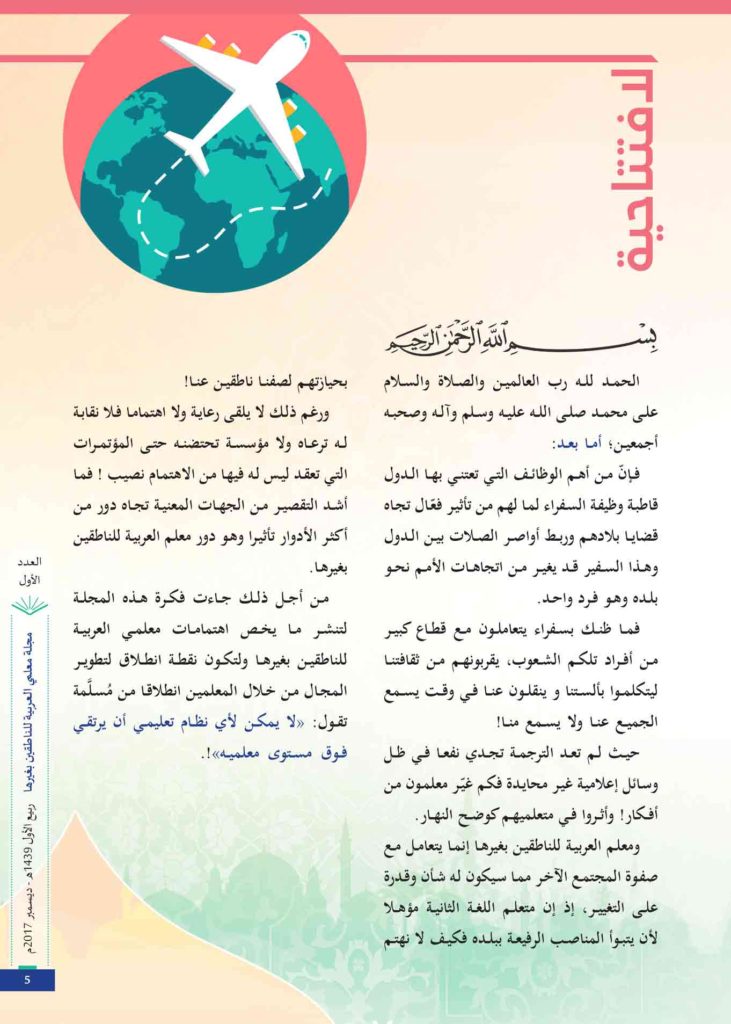 الافتتاحية
بِسْمِ اللَّهِ الرَّحْمَٰنِ الرَّحِيمِ
الحمد لله رب العالمين والصلاة والسلام
على محمد صلى الله عليه وسلم وآله وصحبه
أجمعين؛ أما بعد:
فإنّ من أهم الوظائف التي تعتني بها الدول
قاطبة وظيفة السفراء لما لهم من تأثير فعّال تجاه
قضايا بلادهم وربط أواصر الصلات بين الدول
وهذا السفير قد يغير من اتجاهات الأمم نحو
بلده وهو فرد واحد.
فما ظنك بسفراء يتعاملون مع قطاع كبير
من أفراد تلكم الشعوب، يقربونهم من ثقافتنا
ليتكلموا بألستنا و ينقلون عنا في وقت يسمع
الجميع عنا ولا يسمع منا!
حيث لم تعد الترجمة تجدي نفعا في ظل
وسائل إعلامية غير محايدة فكم غيّر معلمون من
أفكار! وأثروا في متعلميهم كوضح النهار.
ومعلم العربية للناطقين بغيرها إنما يتعامل مع
صفوة المجتمع الآخر مما سيكون له شأن وقدرة
على التغيير، إذ إن متعلم اللغة الثانية مؤهلا
لأن يتبوأ المناصب الرفيعة ببلده فكيف لا نهتم
بحيازتهم لصفنا ناطقين عنا!
ورغم ذلك لا يلقى رعاية ولا اهتماما فلا نقابة
له ترعاه ولا مؤسسة تحتضنه حتى المؤتمرات
التي تعقد ليس له فيها من الاهتمام نصيب ! فما
أشد التقصير من الجهات المعنية تجاه دور من
أكثر الأدوار تأثيرا وهو دور معلم العربية للناطقين
بغيرها.
من أجل ذلك جاءت فكرة هذه المجلة
لتنشر ما يخص اهتمامات معلمي العربية
للناطقين بغيرها ولتكون نقطة انطلاق لتطوير
المجال من خلال المعلمين انطلاقا من مُسلَّمة
تقول: «لا يمكن لأي نظام تعليمي أن يرتقي
فوق مستوى معلميه»!.
العدد
الأول
مجلة معلمي العربية للناطقين بغيرها
ربيع الأول 1439هـ - ديسمبر 2017م
5